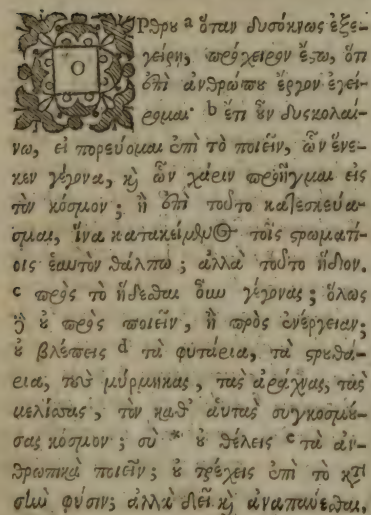 Ὄρθρου a ὅταν δυσόκνως ἐξε-
γείρῃ, πρόχειρον ἔστω, ὅτι
ἐπὶ ἀνθρώπου ἔργον ἐγεί-
ρομαι· b ἔτι οὖν δυσκολαί-
νω, εἰ πορεύομαι ἐπὶ τὸ ποιεῖν, ὧν ἕνε-
κεν γέγονα, καὶ ὧν χάριν προῆγμαι εἰς
τὸν κόσμον; ἢ ἐπὶ τοῦτο κατεσκεύα-
σμαι, ἵνα κατακείμενος τοῖς στρωματί-
οις ἑαυτὸν θάλπω; ἀλλὰ τοῦτο ἥδιον.
c πρὸς τὸ ἥδεσθαι οὖν γέγονας; ὅλως
δὲ οὐ πρὸς ποιεῖν, ἢ πρὸς ἐνέργειαν;
οὐ βλέπεις d τὰ φυτάρια, τὰ στρουθά-
ρια, τοὺς μύρμηκας, τὰς ἀράχνας, τὰς
μελίσσας, τὸν καθ' αὑτὰς συγκοσμού-
σας κόσμον; σὺ * οὐ θέλεις e τὰ ἀν-
θρωπικὰ ποιεῖν; οὐ τρέχεις ἐπὶ τὸ κατὰ
σὴν φύσιν; ἀλλὰ δεῖ καὶ ἀναπαύεσθαι,